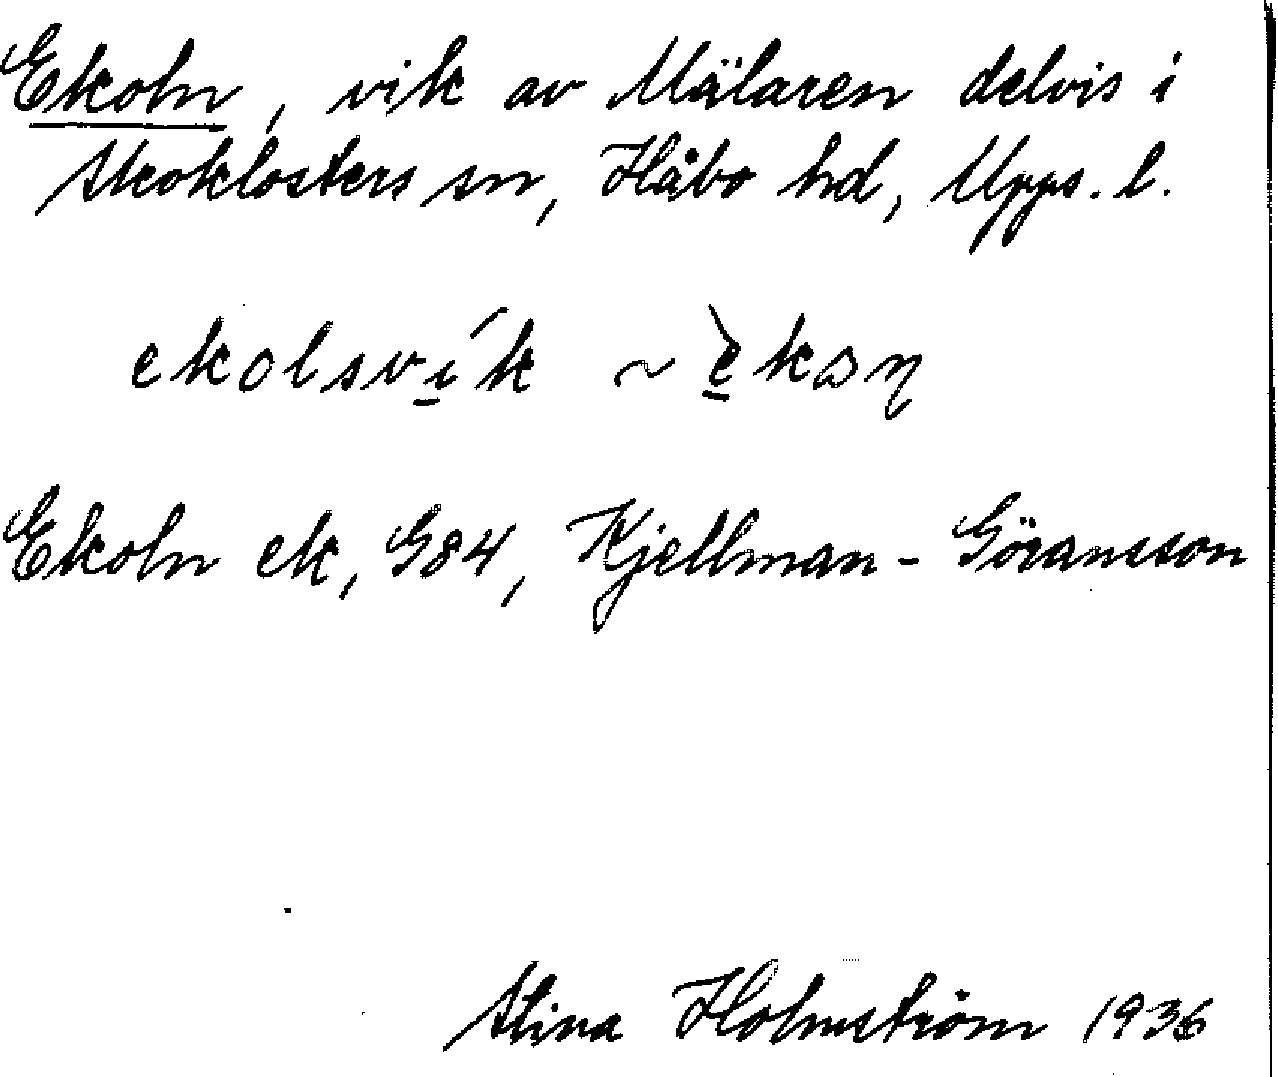 Ekoln, vik av Mälaren delvis i
Skoklosters sn, Håbo hd, Upps. l.
ekolsví̲k ~ è̲kɷɳ
Ekoln ek, G84, Kjellman-Göransson
Stina Holmström 1936